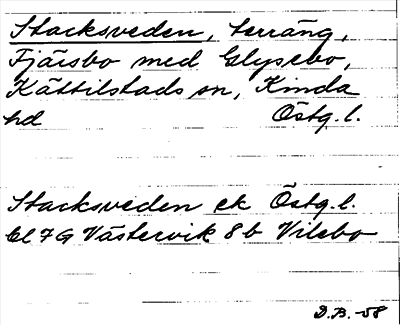 Stacksveden, terräng,
Fjärsbo med Glysebo,
Kättilstads sn, Kinda
hd Östg.l.
Stacksveden ek Östg.l.
bl 7G Västervik 8b Vilebo
D.B. -58